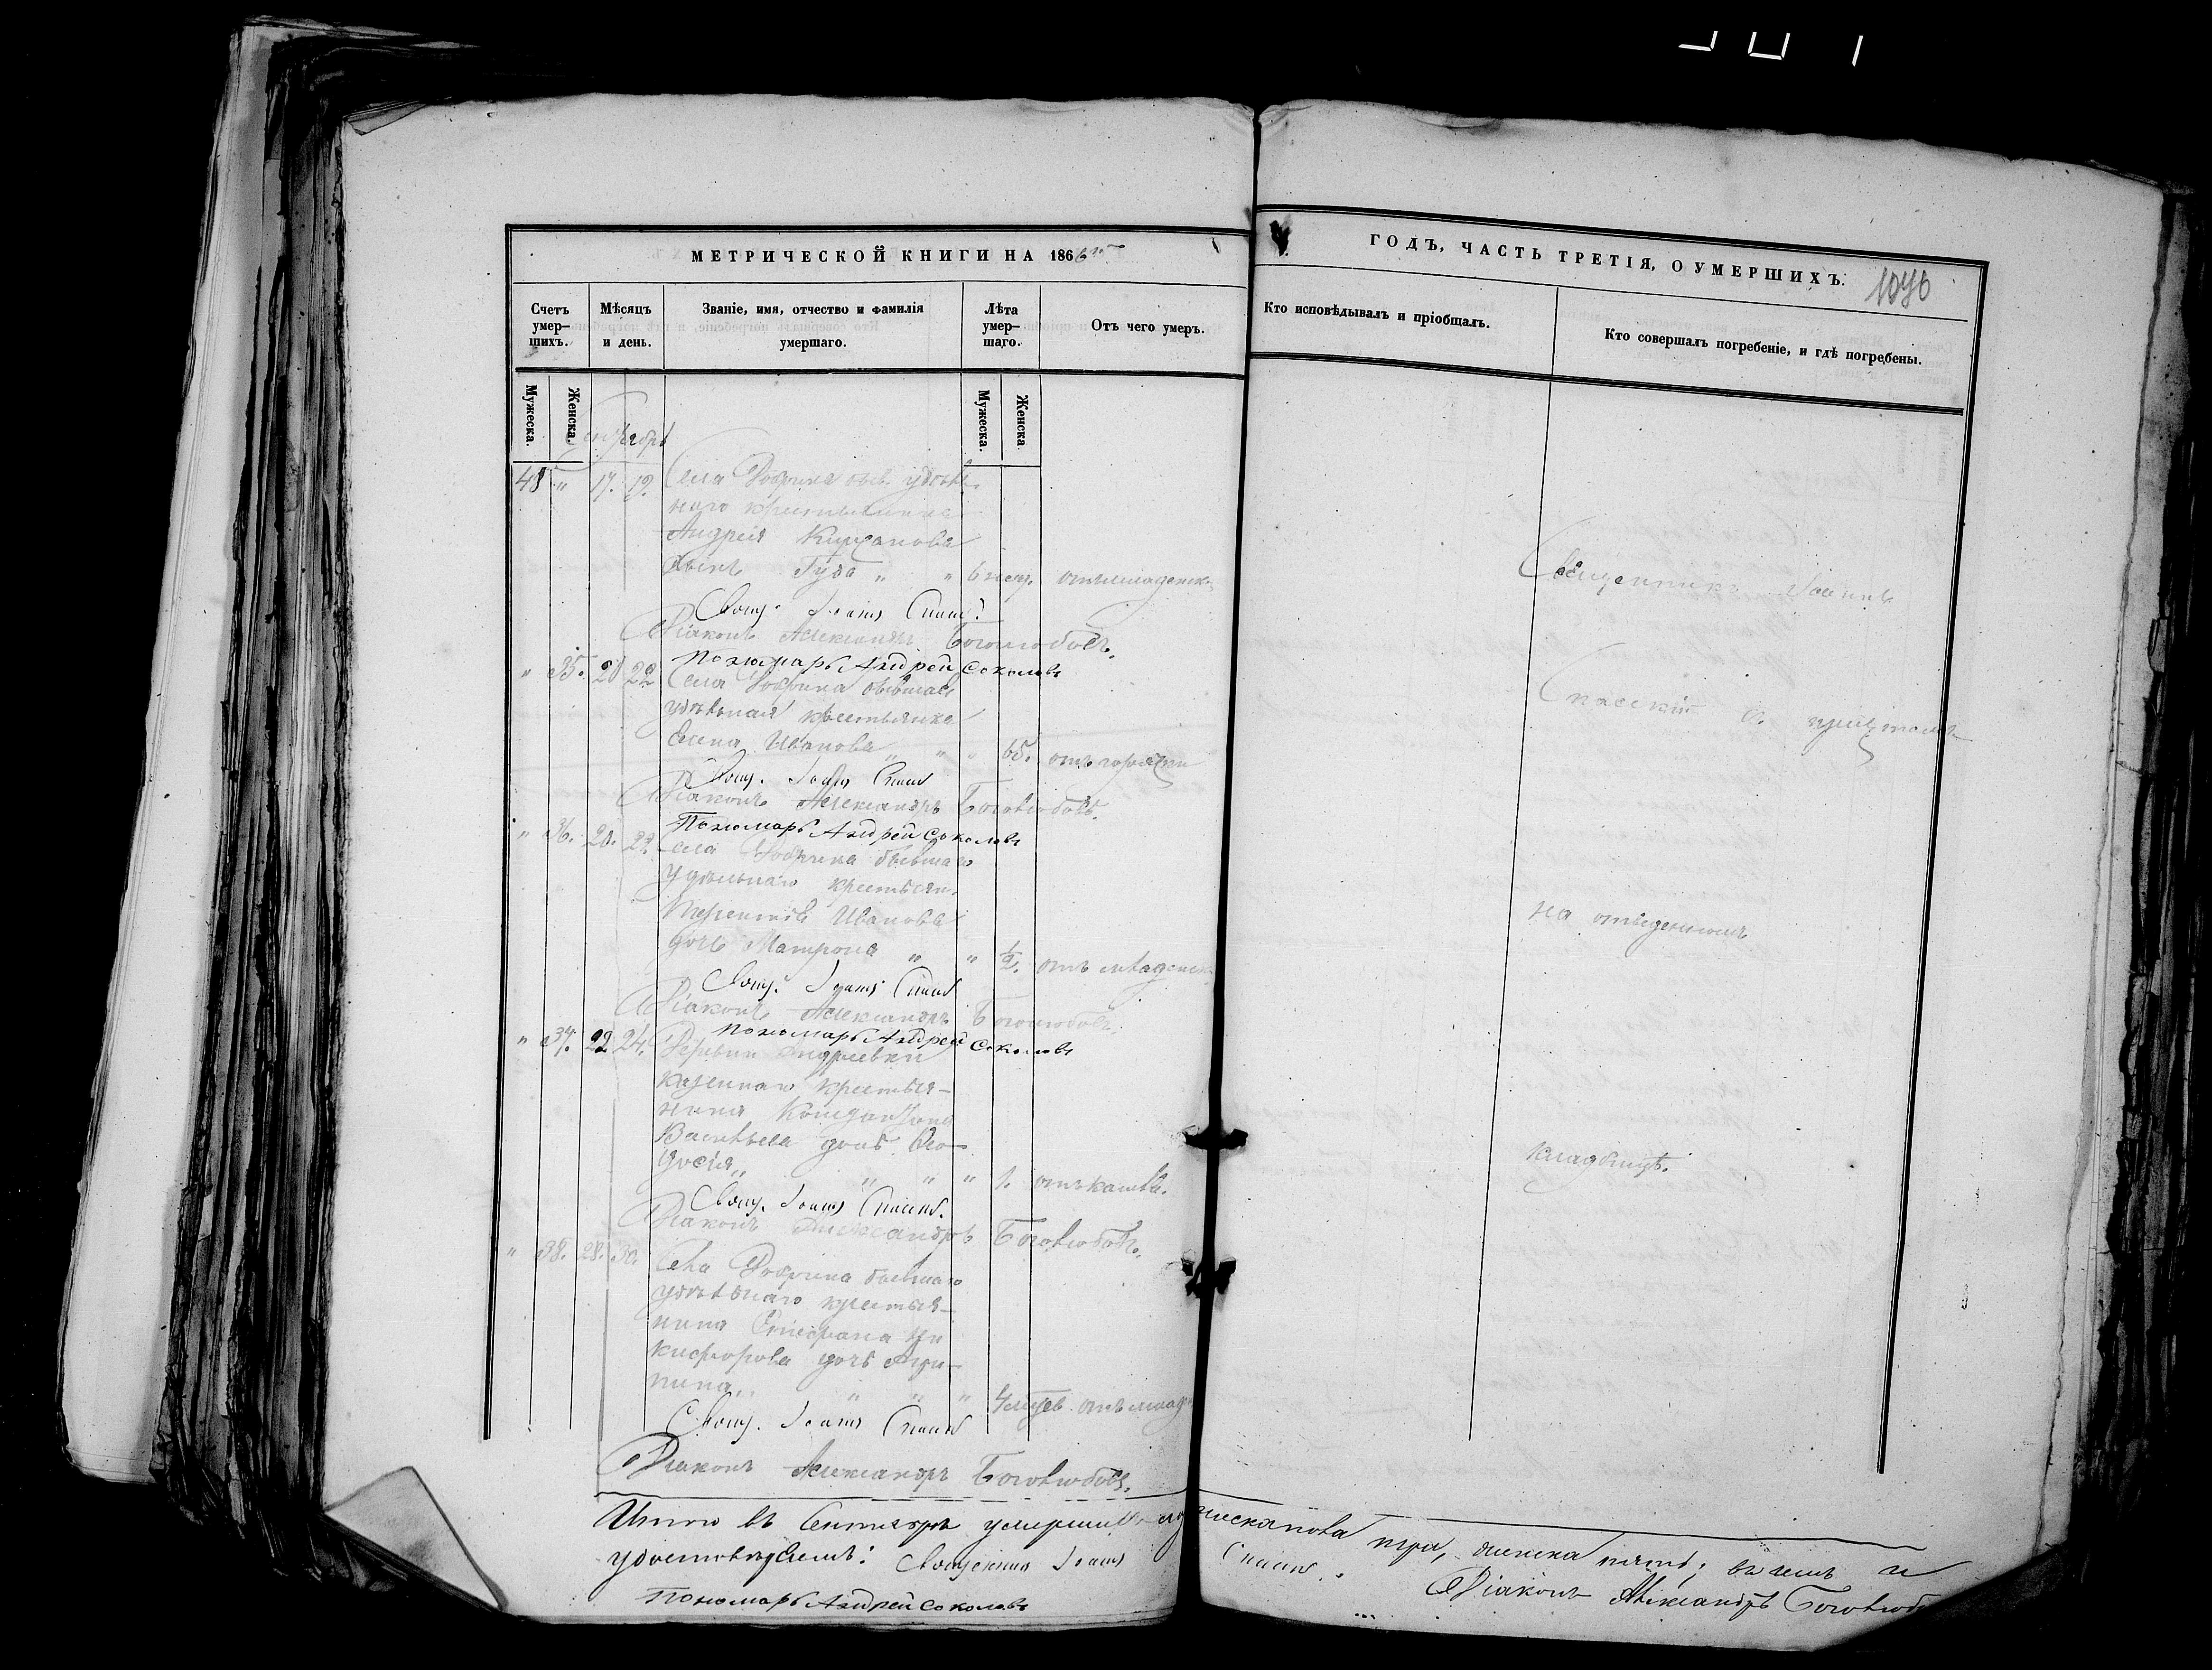 МЕТРИЧЕСКОЙ КНИГИ НА 1866
ГОДЪ, ЧАСТЬ ТРЕТІЯ, О УМЕРШИХЪ.
Счетъ умер– шихъ.
Мѣсяцъ и день.
Званіе, имя, отчество и фамилія умершаго.
Лѣта умер– шаго.
Отъ чего умеръ.
Кто исповѣдывалъ и пріобщалъ.
Кто совершалъ погребеніе, и гдѣ погребены.
Мужеска.
Женска.
Мужеска.
Женска
Сентябрь
48 " 17. 19. Села
наго крестьянина
Андрея
сынъ " " 6 нед. отъ младенч.
Свящ. Іоаннъ Спасс.
Діаконъ Александръ Боголюбовъ.
Пономарь Андрей Соколовъ
" 35. 20 22 Села бывшая
удѣльная крестьянка
Иванова " " " 65. отъ горячки
Свящ. Іоаннъ Спасс
Діаконъ Александръ Боголюбовъ.
Пономарь Андрей Соколовъ
" 36. 20. 22. Села бывшаго
удѣльнаго крестьян.
Терентія Иванова
дочь Матрона " " ½. отъ младенч.
Свящ. Іоаннъ Спасс
Діаконъ Александръ Боголюбовъ.
Пономарь Андрей Соколовъ
" 37. 22 24. Деревни Андреевки
казеннаго крестья–
нина
Васильева дочь Ѳео–
досія " " " " 1. отъ кашля.
Свящ. Іоаннъ Спасс.
Діаконъ Александръ Боголюбовъ.
" 38. 28. 30. Села бывшаго
удѣльнаго крестья–
нина Ни
кифорова дочь
" " " " 4 мѣсев. отъ млад
Свящ. Іоаннъ Спасс
Діаконъ Александръ Боголюбовъ.
Священникъ Іоаннъ
Спасскій с. причтомъ
на отведенномъ
кладбищѣ.
Итого въ Сентябрѣ умершихъ мужеска пола три, женска пять; въ чемъ и
удостовѣряемъ: Священник Іоаннъ Спасс. Діаконъ Александръ Боголюб
Пономарь Андрей Соколовъ